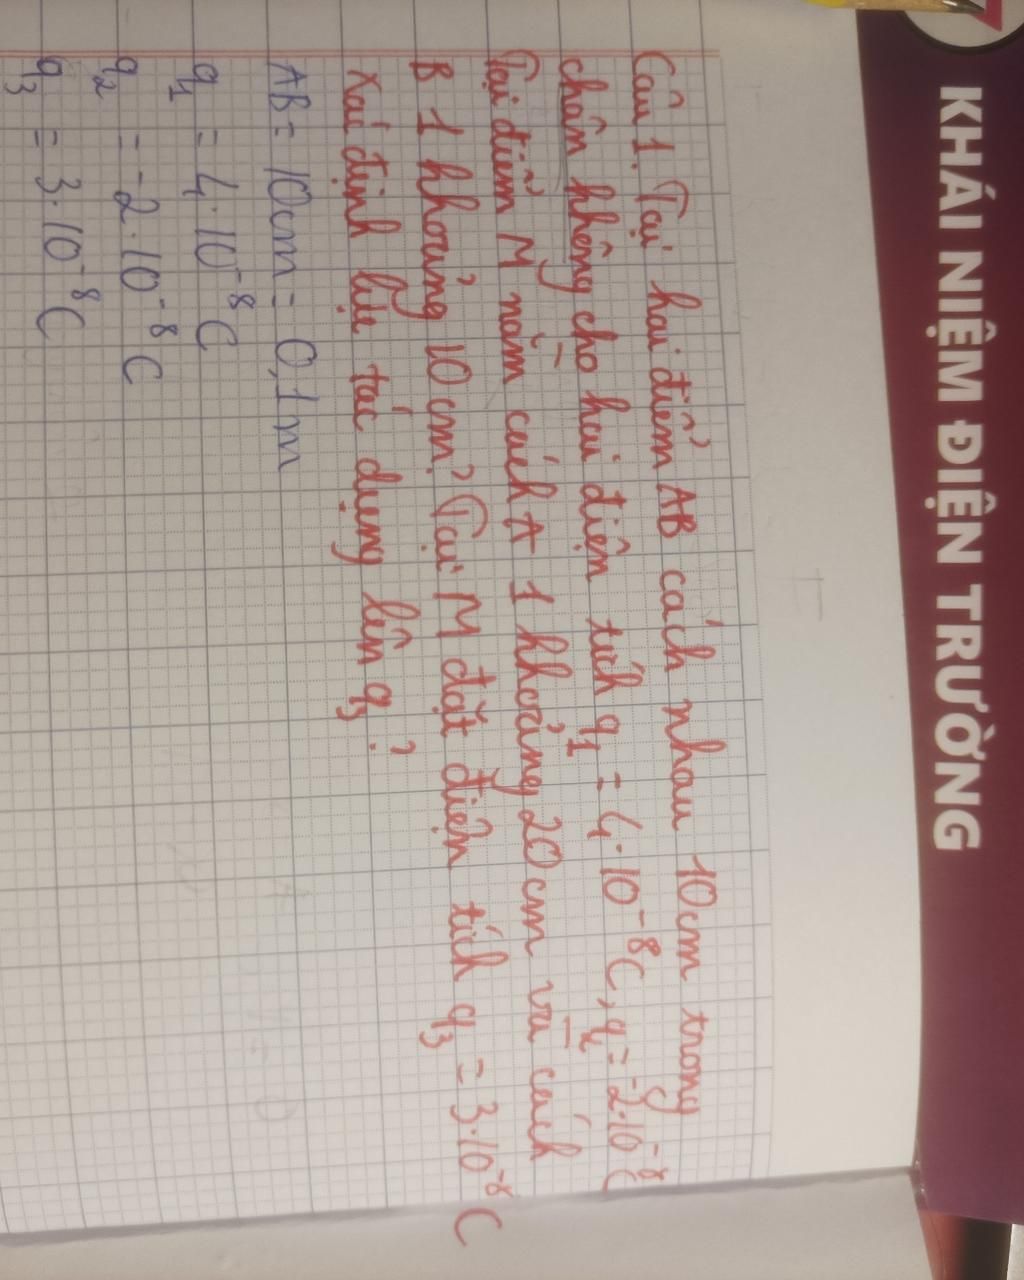 KHÁI NIỆM ĐIỆN TRƯỜNG
Câu 1. Tại hai điểm AB cách nhau 10cm trong
chân không cho hai điện tích q₁ = 4.10⁻⁸C, q₂ = -2.10⁻⁸C
Tại điểm M nằm cách A 1 khoảng 20cm và cách
B 1 khoảng 10cm? Tại M đặt điện tích q₃ = 3.10⁻⁸C
Xác định lực tác dụng lên q₃?
AB = 10cm = 0,1m
q₁ = 4.10⁻⁸C
q₂ = -2.10⁻⁸C
q₃ = 3.10⁻⁸C